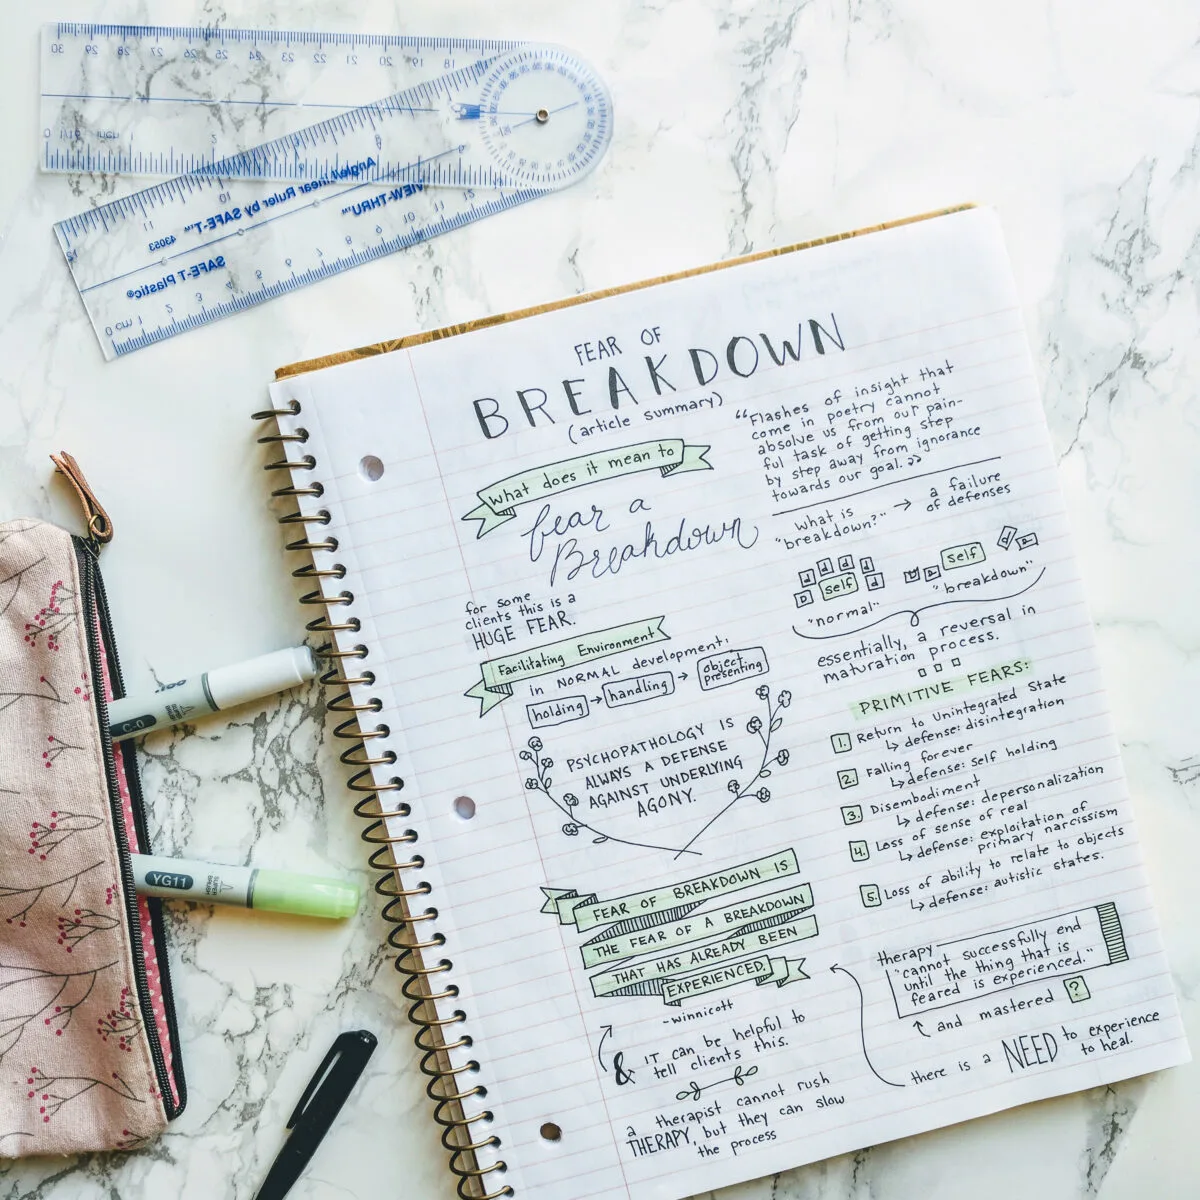 FEAR OF
BREAKDOWN
(article summary)
what does it mean to
fear a
Breakdown
for some
clients this is a
HUGE FEAR.
Facilitating Environment
in NORMAL development,
holding → handling → object presenting
PSYCHOPATHOLOGY IS
ALWAYS A DEFENSE
AGAINST UNDERLYING
AGONY.
FEAR OF BREAKDOWN IS
THE FEAR OF A BREAKDOWN
THAT HAS ALREADY BEEN
EXPERIENCED.
-winnicott
& IT can be helpful to
tell clients this.
a therapist cannot rush
THERAPY, but they can slow
the process
"Flashes of insight that
come in poetry cannot
absolve us from our pain-
ful task of getting step
by step away from ignorance
towards our goal."
"what is
breakdown?" → a failure
of defenses
d d d d
D self d
"normal"
self
"breakdown"
essentially, a reversal in
maturation process.
PRIMITIVE FEARS:
1. Return to Unintegrated State
↳ defense: disintegration
2. Falling forever
↳ defense: Self holding
3. Disembodiment
↳ defense: depersonalization
4. Loss of sense of real
↳ defense: exploitation of
primary narcissism
5. Loss of ability to relate to objects
↳ defense: autistic states.
therapy
"cannot successfully end
until the thing that is
feared is experienced."
↖ and mastered ?
there is a NEED to experience
to heal.
Angle/Linear Ruler by SAFE-T™ 43053
VIEW-THRU™
SAFE-T Plastic®
0 1/16 inch
30 29 28 27 26 25 24 23 22 21 20 19 18
0 cm 1 2 3 4 5 6 7 8 9 10 11 12
C-0
YG11